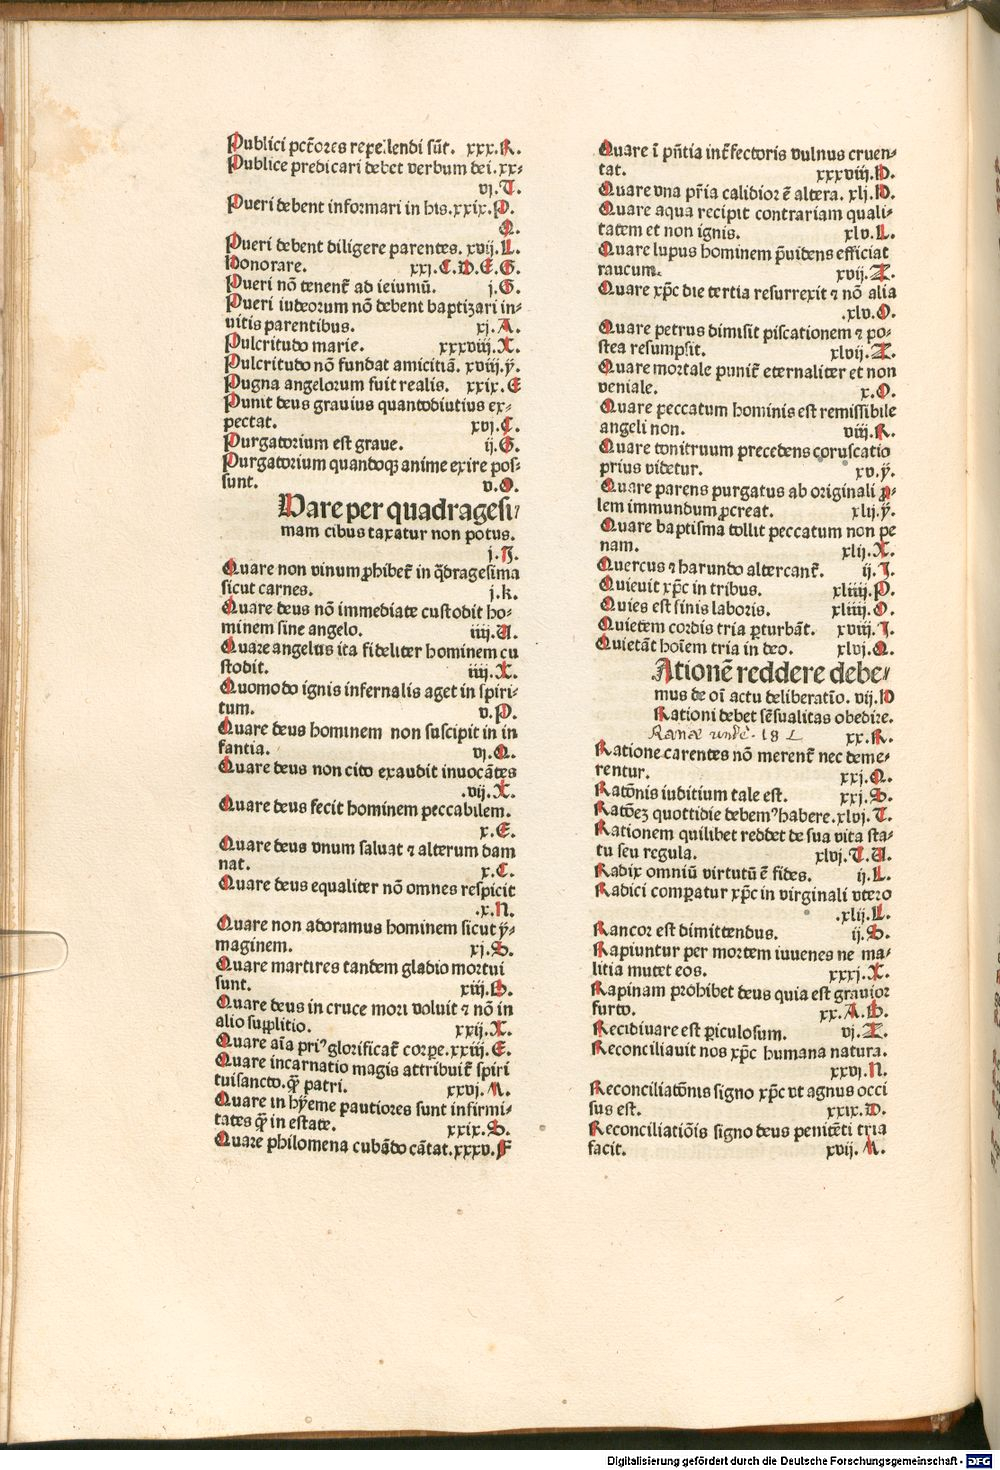 Publici pctores repellendi sūt. xxx.R.
Publice predicari debet verbum dei.xx-
vj.T.
Pueri debent informari in his.xxix.P.
Q.
Pueri debent diligere parentes. xvij.L.
Honorare. xxj.C.D.E.G.
Pueri nō tenent̄ ad ieiuniū. j.G.
Pueri iudeorum nō debent baptizari in-
uitis parentibus. xj.A.
Pulcritudo marie. xxxviij.X.
Pulcritudo nō fundat amicitiā. xviij.ẏ.
Pugna angelorum fuit realis. xxix.E
Punit deus grauius quantodiutius ex-
pectat. xvj.C.
Purgatorium est graue. ij.G.
Purgatorium quandoqꝫ anime exire pos-
sunt. v.O.
Uare per quadragesi/
mam cibus taxatur non potus.
j.N.
Quare non vinum ꝓhibet̄ in q̄dragesima
sicut carnes. j.k.
Quare deus nō immediate custodit ho-
minem sine angelo. iiij.U.
Quare angelus ita fideliter hominem cu
stodit. iiij.X.
Quomodo ignis infernalis aget in spiri-
tum. v.P.
Quare deus hominem non suscipit in in
fantia. vj.Q.
Quare deus non cito exaudit inuocātes
.vij.X.
Quare deus fecit hominem peccabilem.
x.E.
Quare deus vnum saluat ⁊ alterum dam
nat. x.C.
Quare deus equaliter nō omnes respicit
.x.N.
Quare non adoramus hominem sicut ẏ-
maginem. xj.S.
Quare martires tandem gladio mortui
sunt. xiij.H.
Quare deus in cruce mori voluit ⁊ nō in
alio supplitio. xxij.X.
Quare aīa priꝰ glorificat̄ corꝑe.xxiij.E.
Quare incarnatio magis attribuit̄ spiri
tuisancto.qꝫ patri. xxvj.M.
Quare in hẏeme pautiores sunt infirmi-
tates qꝫ in estate. xxix.S.
Quare philomena cubādo cātat.xxxv.F
Quare ī pn̄tia int̄fectoris vulnus cruen-
tat. xxxviij.D.
Quare vna pr̄ia calidior ē altera. xlj.D.
Quare aqua recipit contrariam quali-
tatem et non ignis. xlv.L.
Quare lupus hominem p̄uidens efficiat
raucum. xvij.Z.
Quare xp̄c die tertia resurrexit ⁊ nō alia
.xlv.O.
Quare petrus dimisit piscationem ⁊ po-
stea resumpsit. xlvij.Z.
Quare mortale punit̄ eternaliter et non
veniale. x.O.
Quare peccatum hominis est remissibile
angeli non. viij.R.
Quare tonitruum precedens coruscatio
prius videtur. xv.ẏ.
Quare parens purgatus ab originali ꝓ-
lem immundum ꝓcreat. xlij.ẏ.
Quare baptisma tollit peccatum non pe
nam. xlij.X.
Quercus ⁊ harundo altercant̄. ij.I.
Quieuit xp̄c in tribus. xliiij.P.
Quies est finis laboris. xliiij.O.
Quietem cordis tria ꝑturbāt. xviij.I.
Quietāt hoīem tria in deo. xlvj.Q.
Ationē reddere debe/
mus de oī actu deliberatio. vij.D
Rationi debet sēsualitas obedire.
xx.R.
Ratione carentes nō merent̄ nec deme-
rentur. xxj.Q.
Ratōnis iuditium tale est. xxj.S.
Ratōeꝫ quottidie debemꝰ habere.xlvj.T.
Rationem quilibet reddet de sua vita sta-
tu seu regula. xlvj.T.U.
Radix omniū virtutū ē fides. ij.L.
Radici comꝑatur xp̄c in virginali vtero
.xlij.L.
Rancor est dimittendus. ij.S.
Rapiuntur per mortem iuuenes ne ma-
litia mutet eos. xxxj.X.
Rapinam prohibet deus quia est grauior
furto. xx.A.H.
Recidiuare est ꝑiculosum. vj.Z.
Reconciliauit nos xp̄c humana natura.
xxvj.N.
Reconciliatōnis signo xp̄c vt agnus occi
sus est. xxix.D.
Reconciliatiōis signo deus penitēti tria
facit. xvij.M.
Digitalisierung gefördert durch die Deutsche Forschungsgemeinschaft - DFG